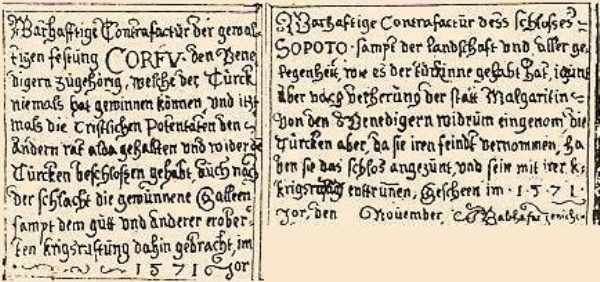 Warhafftige Contrafactur der gewal-
tigen festung CORFV. den Vene
digern zugehörig, welche der Türck
niemals hat gewinnen können, vnd itzt
mals die Cristlichen Potentaten den
andern rat alda gehalten vnd wider de
Türcken beschlossen gehabt, auch nach
der schlacht die gewunnene Galleen
sampt dem gutt vnd anderer erober-
ten krigsrustung dahin gebracht, im
1571 Jor
Warhafftige Contrafactur dess schlosses
SOPOTO. sampt der landschaft vnd aller ge,
legenheit, wie es der türck inne gehabt hat, itzunt
aber nach verherung der statt Malgaritin
von den Venedigern widrum eingenom, die
Türcken aber, da sie iren feindt vernommen, ha
ben sie das schlos angezünt, vnd sein mit irer k-
krigsrustung enttrunen, Gescheen im. 1571.
Jor, den November,